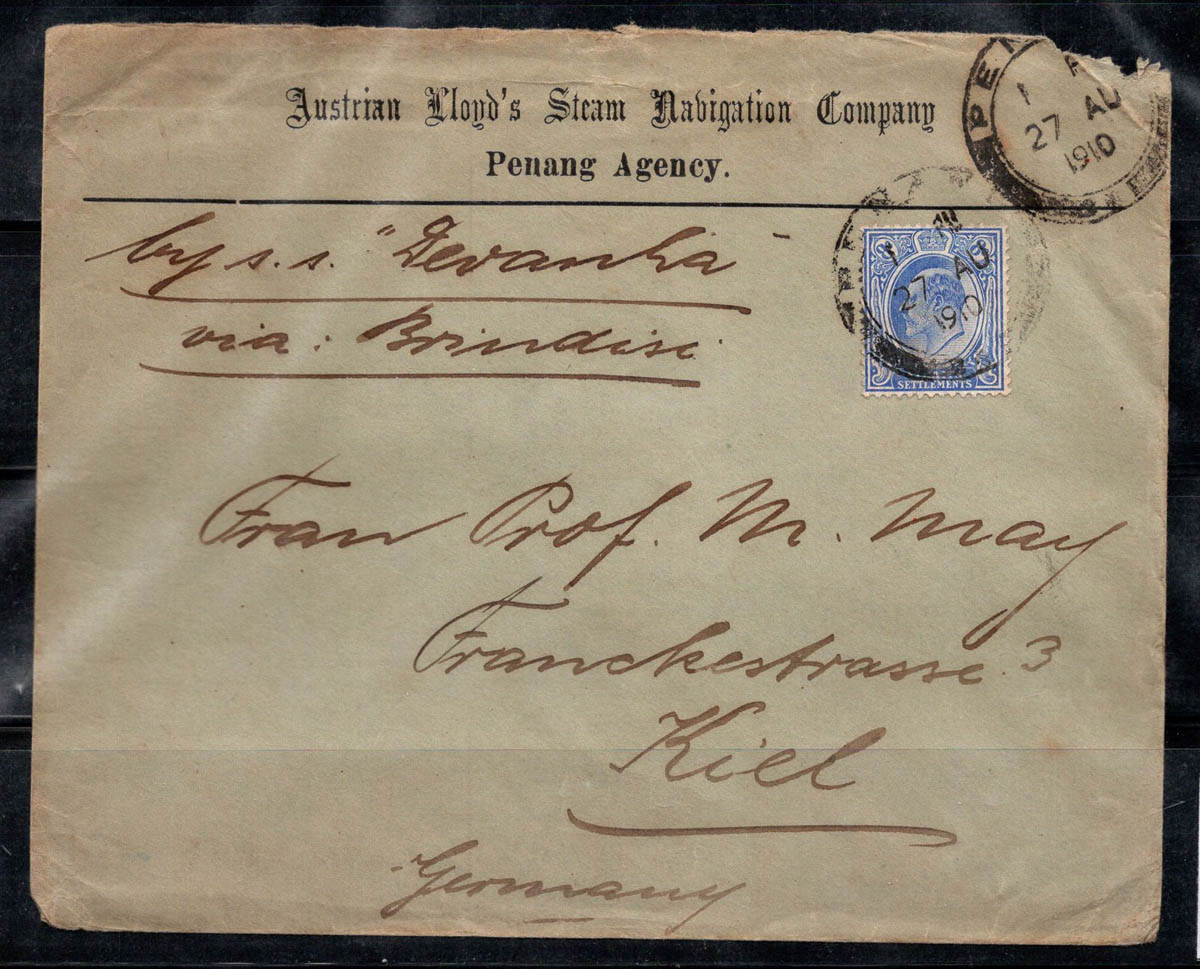 Austrian Lloyd's Steam Navigation Company
Penang Agency.
PEN
1
27 AU
1910
by s.s. "Devanha"
via: Brindisi
PENA
1
27 AU
1910
SETTLEMENTS
Frau Prof. M. May
Franckestrasse 3
Kiel
Germany